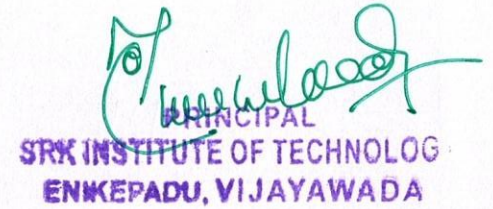 PRINCIPAL
SRK INSTITUTE OF TECHNOLOG
ENIKEPADU, VIJAYAWADA